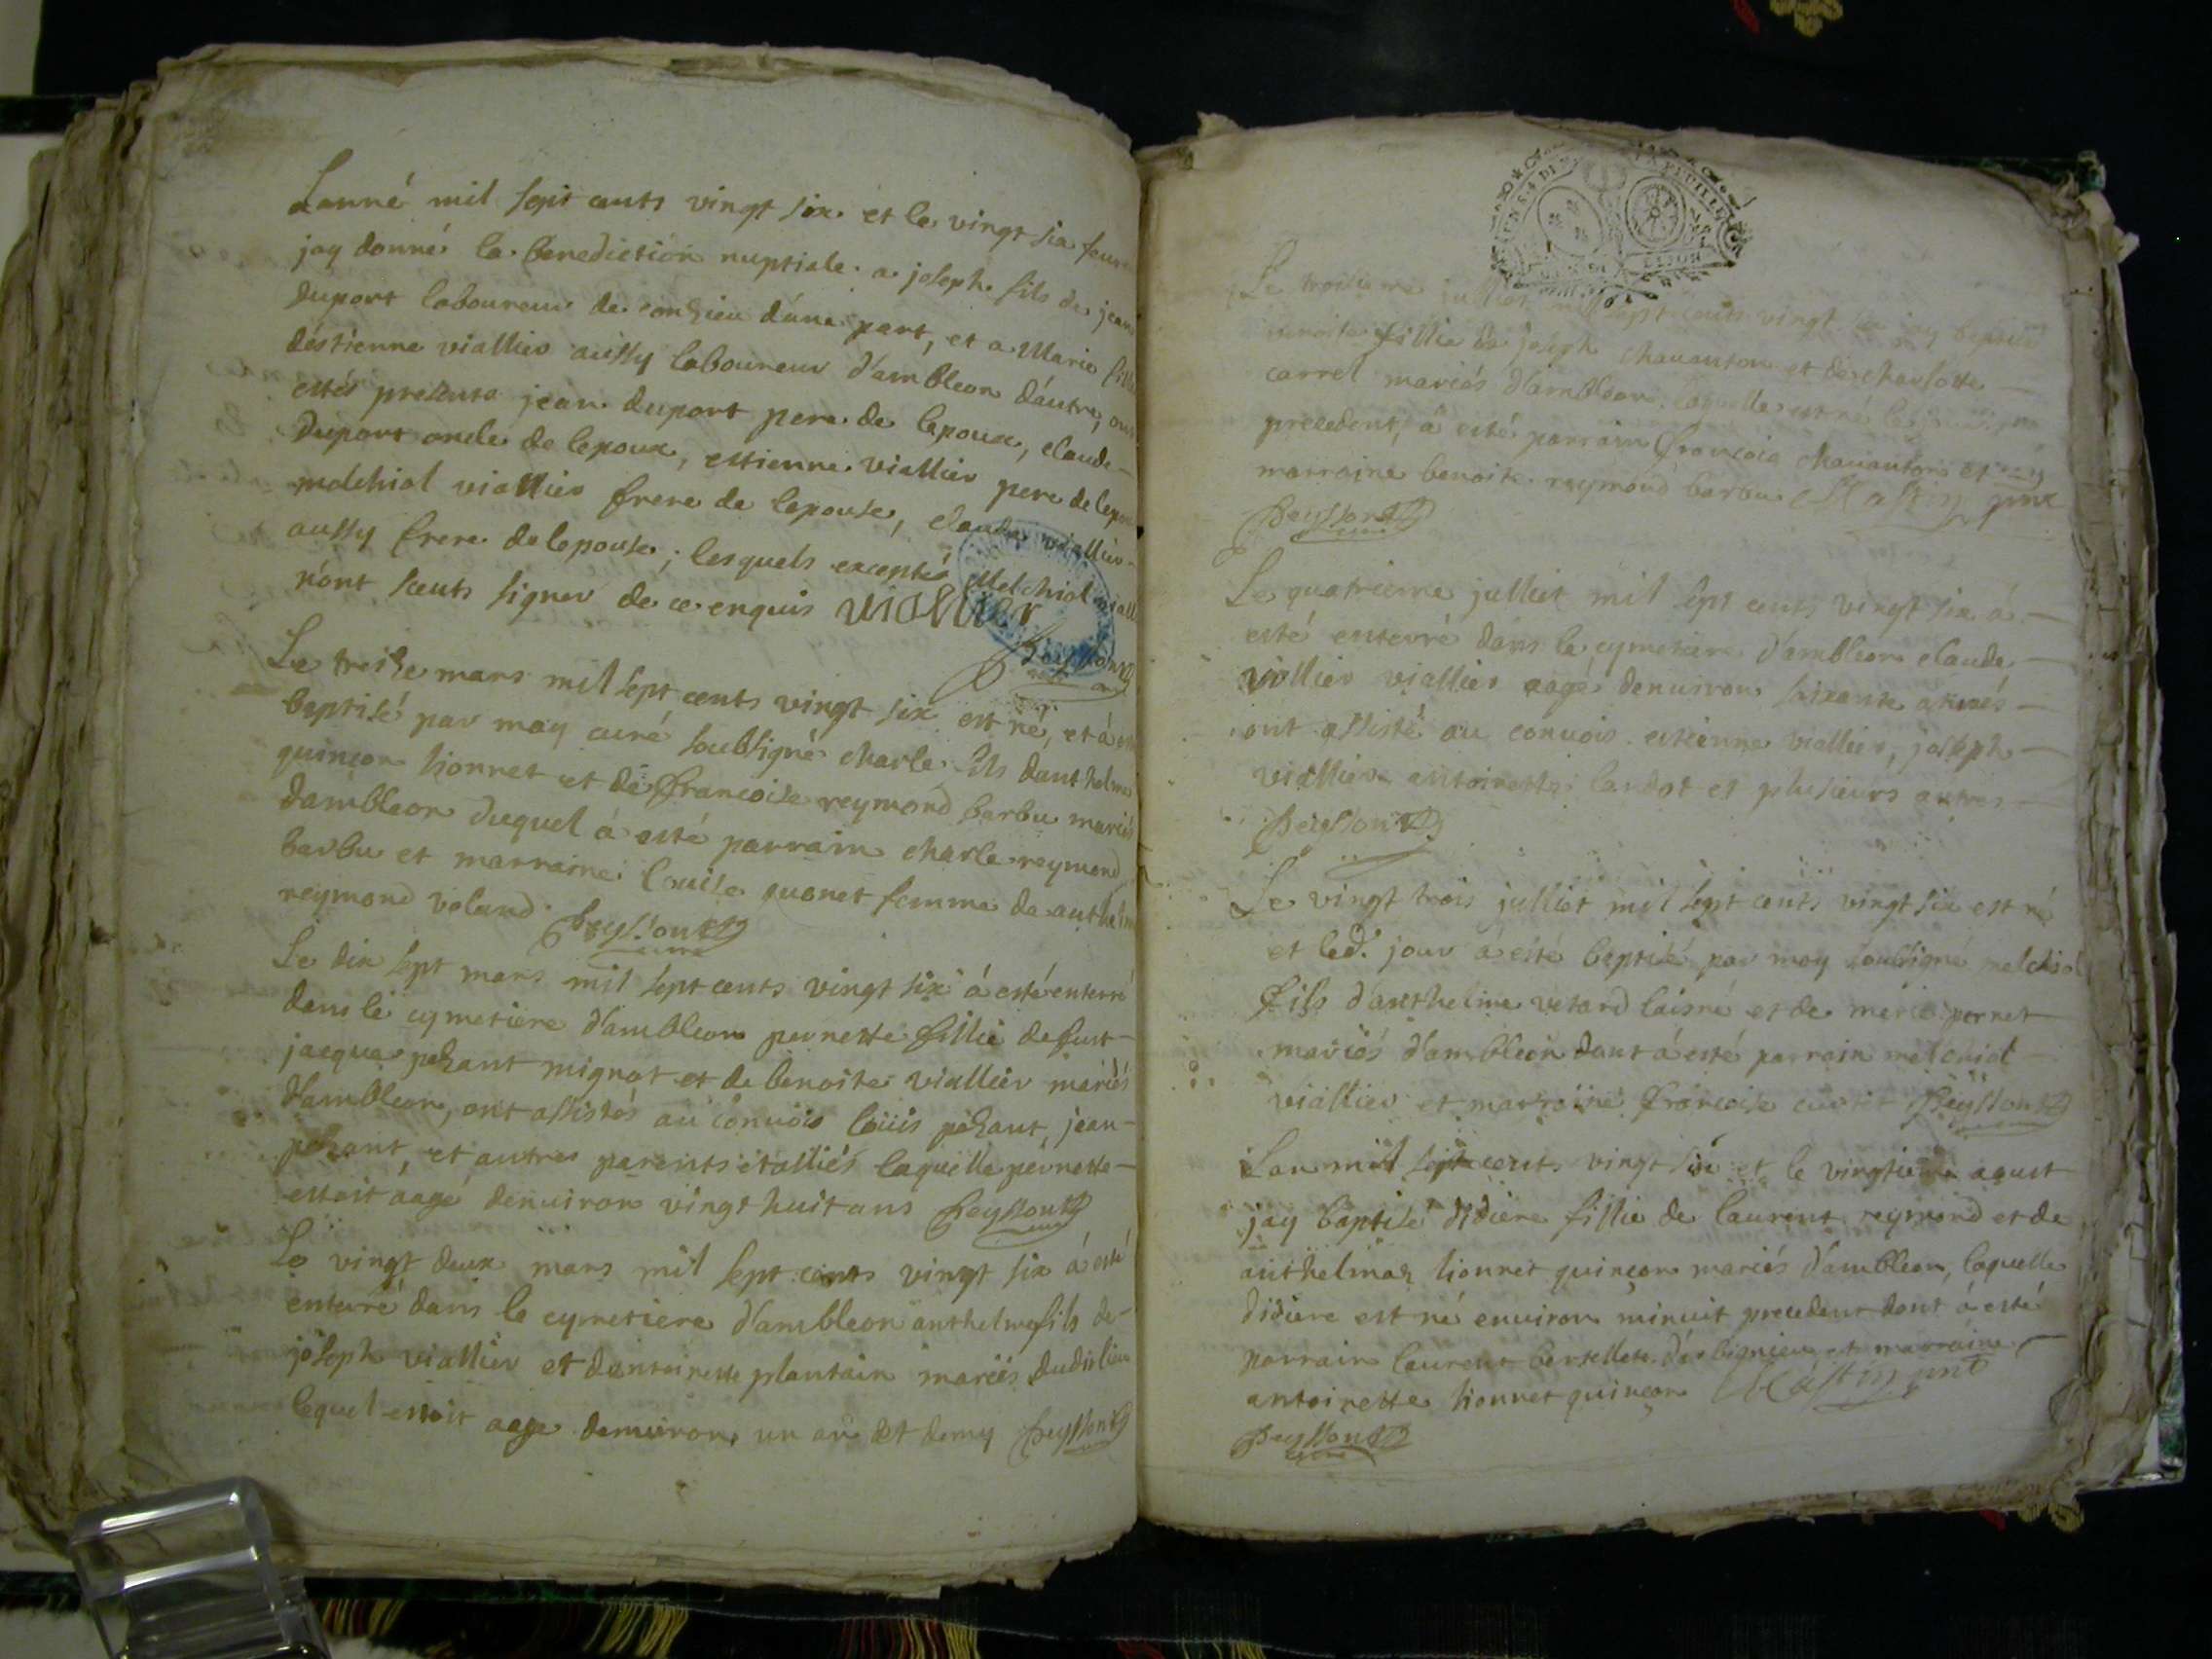 Lanné mil sept cents vingt six et le vingt six feur
jay donné la benediction nuptiale a joseph fils de jean
duport laboureur de conzieu d'une part, et a Marie fille
destienne viallier aussy laboureur d'ambleon d'autre, ont
estés presents jean duport pere de lepoux, claude
duport oncle de lepoux, estienne viallier pere de lepou
melchiol viallier frere de lepouse, claude viallier
aussy frere de lepouse; lesquels exceptés Melchiol viall
n'ont sceuts signer de ce enquis viallier
Peysson curé
Le treise mars mil sept cents vingt six est né, et à esté
baptisé par moy curé soubsigné charle fils danthelme
quinçon lionnet et de françoise reymond barbu mariés
dambleon duquel á esté parrain charle reymond
barbu et marraine Louise quonet femme de anthelme
reymond voland. Peysson curé
Le dix sept mars mil sept cents vingt six á esté enterré
dans le cymetiere d'ambleon pernette fillie de fust
jacque pezant mignot et de benoite viallier mariés
d'ambleon, ont assistés au convois loüis pezant, jean
pezant, et autres parents et alliés laquelle pernette
estoit aagé denuiron vingt huit ans Peysson curé
Le vingt deux mars mil sept cents vingt six á esté
enterré dans le cymetiere d'ambleon anthelme fils de
joseph viallier et dantoinette plantain mariés dudit lieu
lequel estoit aage denuiron un an et demy Peysson curé
Le troisieme julliet mil sept cents vingt six jay baptisé
benoite fillie de joseph chauanton et de charlotte
carrel mariés d'ambleon laquelle est né le jour
precedent, á esté parrain françois chauanton et
marraine benoite reymond barbu Mastin pnt
Peysson curé
Le quatrieme julliet mil sept cents vingt six á
esté enterré dans le cymetiere d'ambleon claude
viallier viallier aagé denuiron soixante annés
ont assisté au convois estienne viallier, joseph
viallier antoinette landot et plusieurs autres
Peysson curé
Le vingt trois julliet mil sept cents vingt six est né
et led. jour á esté baptisé par moy soubsigné melchiol
fils d'anthelme vetard laisné et de marie pernet
mariés d'ambleon dont á esté parrain melchiol
viallier et marraine françoise curtet Peysson curé
Lan mil sept cents vingt six et le vingtieme aoust
jay baptisé didiere fillie de laurent reymond et de
anthelmaz lionnet quinçon mariés d'ambleon, laquelle
didiere est né enuiron minuit precedent dont á esté
parrain laurent bertellet d'arbignieu et marraine
antoinette lionnet quinçon Mastin pnt
Peysson curé